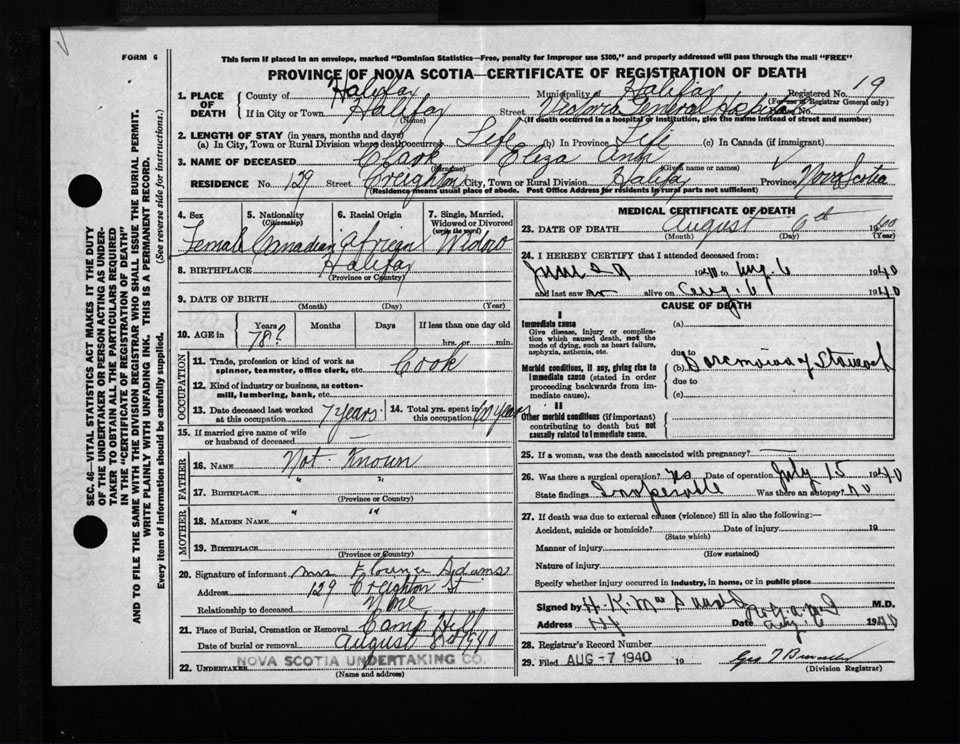 FORM 6
This form if placed in an envelope, marked "Dominion Statistics—Free, penalty for improper use $300," and properly addressed will pass through the mail "FREE"
PROVINCE OF NOVA SCOTIA—CERTIFICATE OF REGISTRATION OF DEATH
1. PLACE OF DEATH
County of Halifax Municipality of Halifax Registered No. 19
(For use of Registrar General only)
If in City or Town Halifax Street Victoria General Hospital
(Name) (If death occurred in a hospital or institution, give the name instead of street and number)
2. LENGTH OF STAY (in years, months and days)
(a) In City, Town or Rural Division where death occurred Life (b) In Province Life (c) In Canada (if immigrant)
3. NAME OF DECEASED Eliza Ann
(Surname) (Given name or names)
RESIDENCE No. 129 Street Creighton City, Town or Rural Division Halifax Province Nova Scotia
(Residence means usual place of abode. Post Office Address for residents in rural parts not sufficient)
4. Sex Female
5. Nationality (Citizenship) Canadian
6. Racial Origin African
7. Single, Married, Widowed or Divorced (write the word) Widow
8. BIRTHPLACE Halifax
(Province or Country)
9. DATE OF BIRTH
(Month) (Day) (Year)
10. AGE in Years Months Days If less than one day old
78? hrs. or min.
OCCUPATION
11. Trade, profession or kind of work as spinner, teamster, office clerk, etc. Cook
12. Kind of industry or business, as cotton-mill, lumbering, bank, etc.
13. Date deceased last worked at this occupation 7 years
14. Total yrs. spent in this occupation years
15. If married give name of wife or husband of deceased —
FATHER
16. NAME Not Known
17. BIRTHPLACE " "
(Province or Country)
MOTHER
18. MAIDEN NAME " "
19. BIRTHPLACE
(Province or Country)
20. Signature of informant Mrs Florence Adams
Address 129 Creighton St
Relationship to deceased None
21. Place of Burial, Cremation or Removal Camp Hill
Date of burial or removal August 8 1940
22. UNDERTAKER NOVA SCOTIA UNDERTAKING CO.
(Name and address)
MEDICAL CERTIFICATE OF DEATH
23. DATE OF DEATH August 6th 1940
(Month) (Day) (Year)
24. I HEREBY CERTIFY that I attended deceased from:
June 29 1940 to Aug. 6 1940
and last saw alive on Aug. 6 1940
CAUSE OF DEATH
I
Immediate cause (a)
Give disease, injury or complication which caused death, not the mode of dying, such as heart failure, asphyxia, asthenia, etc.
due to
Morbid conditions, if any, giving rise to immediate cause (stated in order proceeding backwards from immediate cause).
(b) of Stomach
due to
(c)
II
Other morbid conditions (if important) contributing to death but not causally related to immediate cause.
25. If a woman, was the death associated with pregnancy? —
26. Was there a surgical operation? yes Date of operation July 15 1940
State findings Inoperable Was there an autopsy? no
27. If death was due to external causes (violence) fill in also the following:—
Accident, suicide or homicide? Date of injury 19
(State which)
Manner of injury
(How sustained)
Nature of injury
Specify whether injury occurred in industry, in home, or in public place
Signed by H. K. M.D.
Address Date Aug. 6 1940
28. Registrar's Record Number
29. Filed AUG -7 1940 19 Geo
(Division Registrar)
SEC. 46—VITAL STATISTICS ACT MAKES IT THE DUTY
OF THE UNDERTAKER OR PERSON ACTING AS UNDER-
TAKER TO OBTAIN ALL THE PARTICULARS REQUIRED
IN THE "CERTIFICATE OF REGISTRATION OF DEATH"
AND TO FILE THE SAME WITH THE DIVISION REGISTRAR WHO SHALL ISSUE THE BURIAL PERMIT.
WRITE PLAINLY WITH UNFADING INK. THIS IS A PERMANENT RECORD.
Every item of information should be carefully supplied. (See reverse side for instructions.)